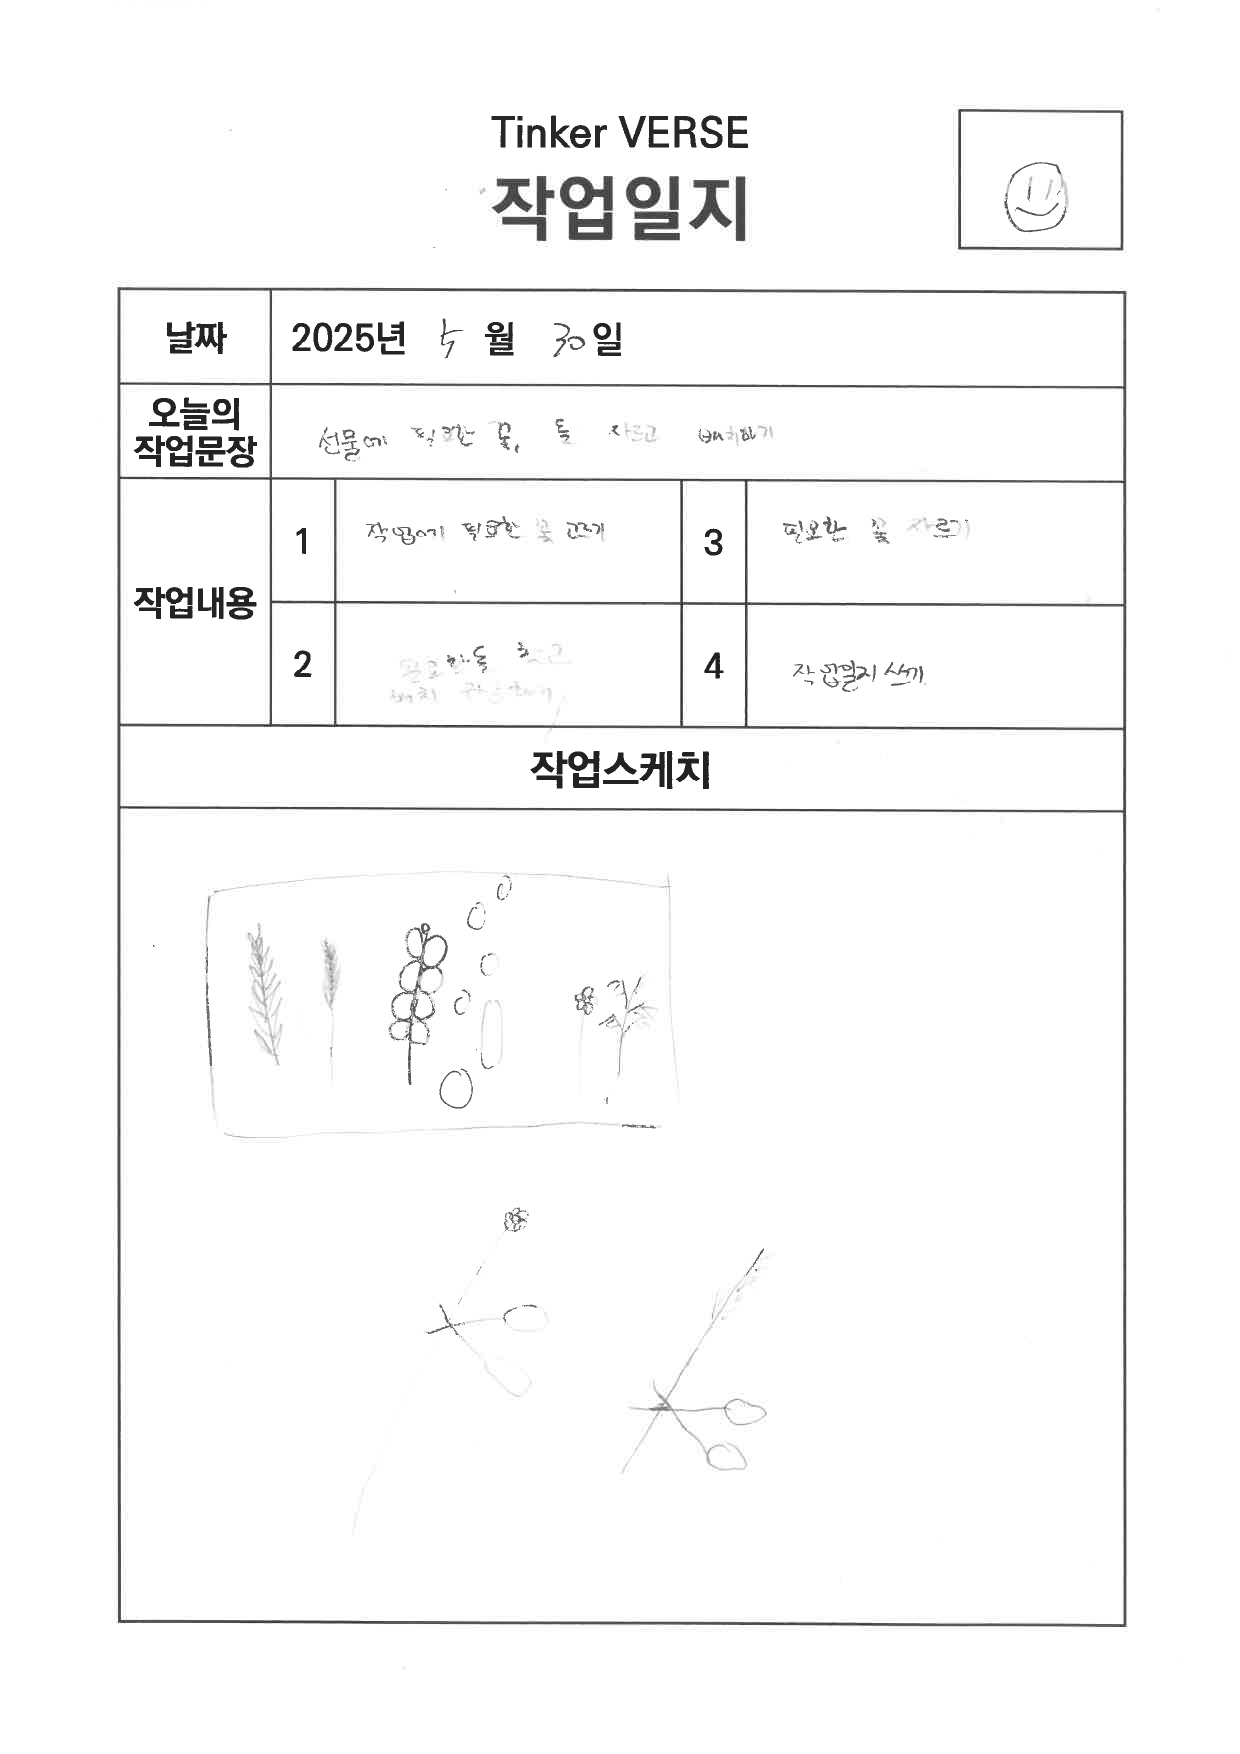 Tinker VERSE
작업일지
날짜
2025년 5월 30일
오늘의
작업문장
선물에 필요한 꽃, 돌 자르고 배치하기
작업내용
1
작업에 필요한 꽃 고르기
3
필요한 꽃 자르기
2
필요한 돌
배치
4
작업일지 쓰기
작업스케치